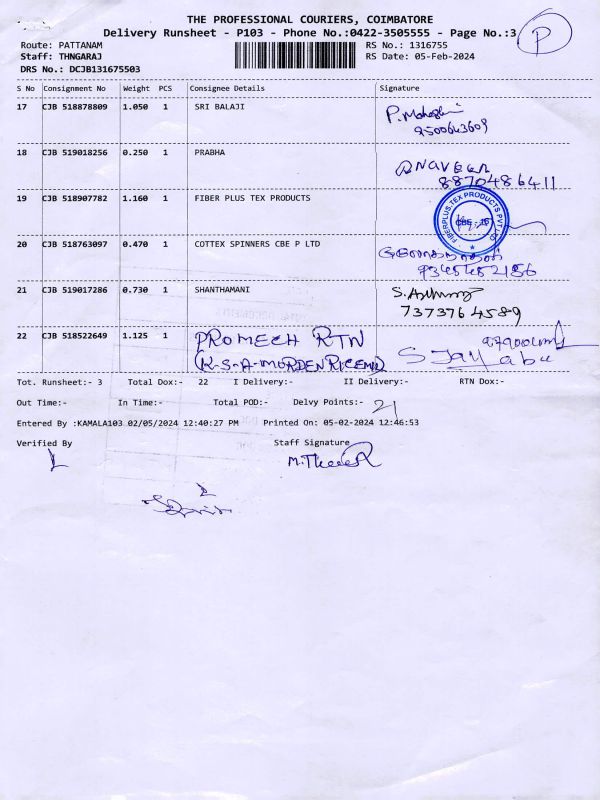 THE PROFESSIONAL COURIERS, COIMBATORE
Delivery Runsheet - P103 - Phone No.:0422-3505555 - Page No.:3 P
Route: PATTANAM RS No.: 1316755
Staff: THNGARAJ RS Date: 05-Feb-2024
DRS No.: DCJB131675503
S No Consignment No Weight PCS Consignee Details Signature
17 CJB 518878809 1.050 1 SRI BALAJI
9500643609
18 CJB 519018256 0.250 1 PRABHA
NAVEEN
8870486411
19 CJB 518907782 1.160 1 FIBER PLUS TEX PRODUCTS
FIBERPLUS TEX PRODUCTS PVT LTD
20 CJB 518763097 0.470 1 COTTEX SPINNERS CBE P LTD
9345452156
21 CJB 519017286 0.730 1 SHANTHAMANI
7373764589
22 CJB 518522649 1.125 1 PROMECH RTN
(K-S-A-MORDEN RICEMILL) S Jay abu
Tot. Runsheet:- 3 Total Dox:- 22 I Delivery:- II Delivery:- RTN Dox:-
Out Time:- In Time:- Total POD:- Delvy Points:- 21
Entered By :KAMALA103 02/05/2024 12:40:27 PM Printed On: 05-02-2024 12:46:53
Verified By Staff Signature